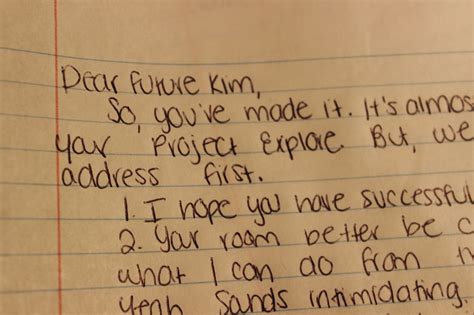 Dear Future Kim,
So, you've made it. It's almos
your Project Explore. But, we
address first.
1. I hope you have successful
2. Your room better be c
what I can do from th
yeah sounds intimidating.